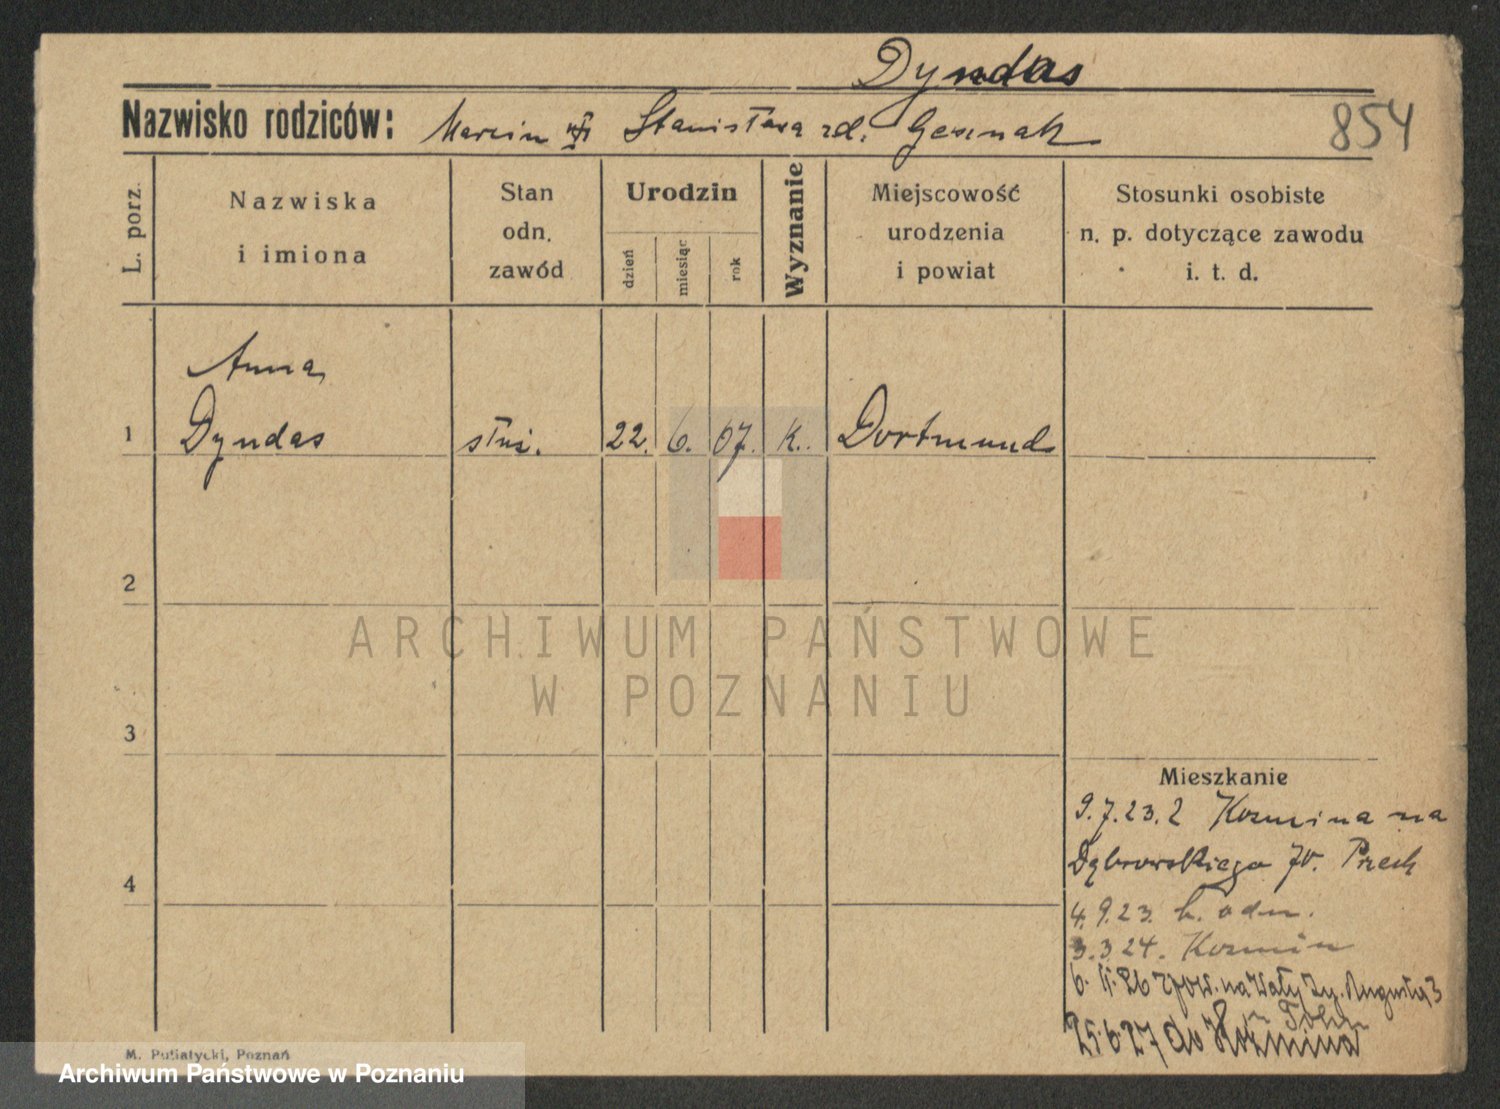 Dyndas
Nazwisko rodziców: Marcin Stanisława zd.
854
L. porz.
Nazwiska
i imiona
Stan
odn.
zawód
Urodzin
dzień
miesiąc
rok
Wyznanie
Miejscowość
urodzenia
i powiat
Stosunki osobiste
n. p. dotyczące zawodu
i. t. d.
Anna
1 Dyndas służ. 22. 6. 07. k. Dortmund
2
ARCHIWUM PAŃSTWOWE
W POZNANIU
3
Mieszkanie
9.7.23. z Kozmina na
Dąbrowskiego
4
4.9.23. odm.
3.3.24. Kozmin
na Wały Zyg. Augusta 3
25.6.27 do Kozmina
M. Putiatycki, Poznań
Archiwum Państwowe w Poznaniu